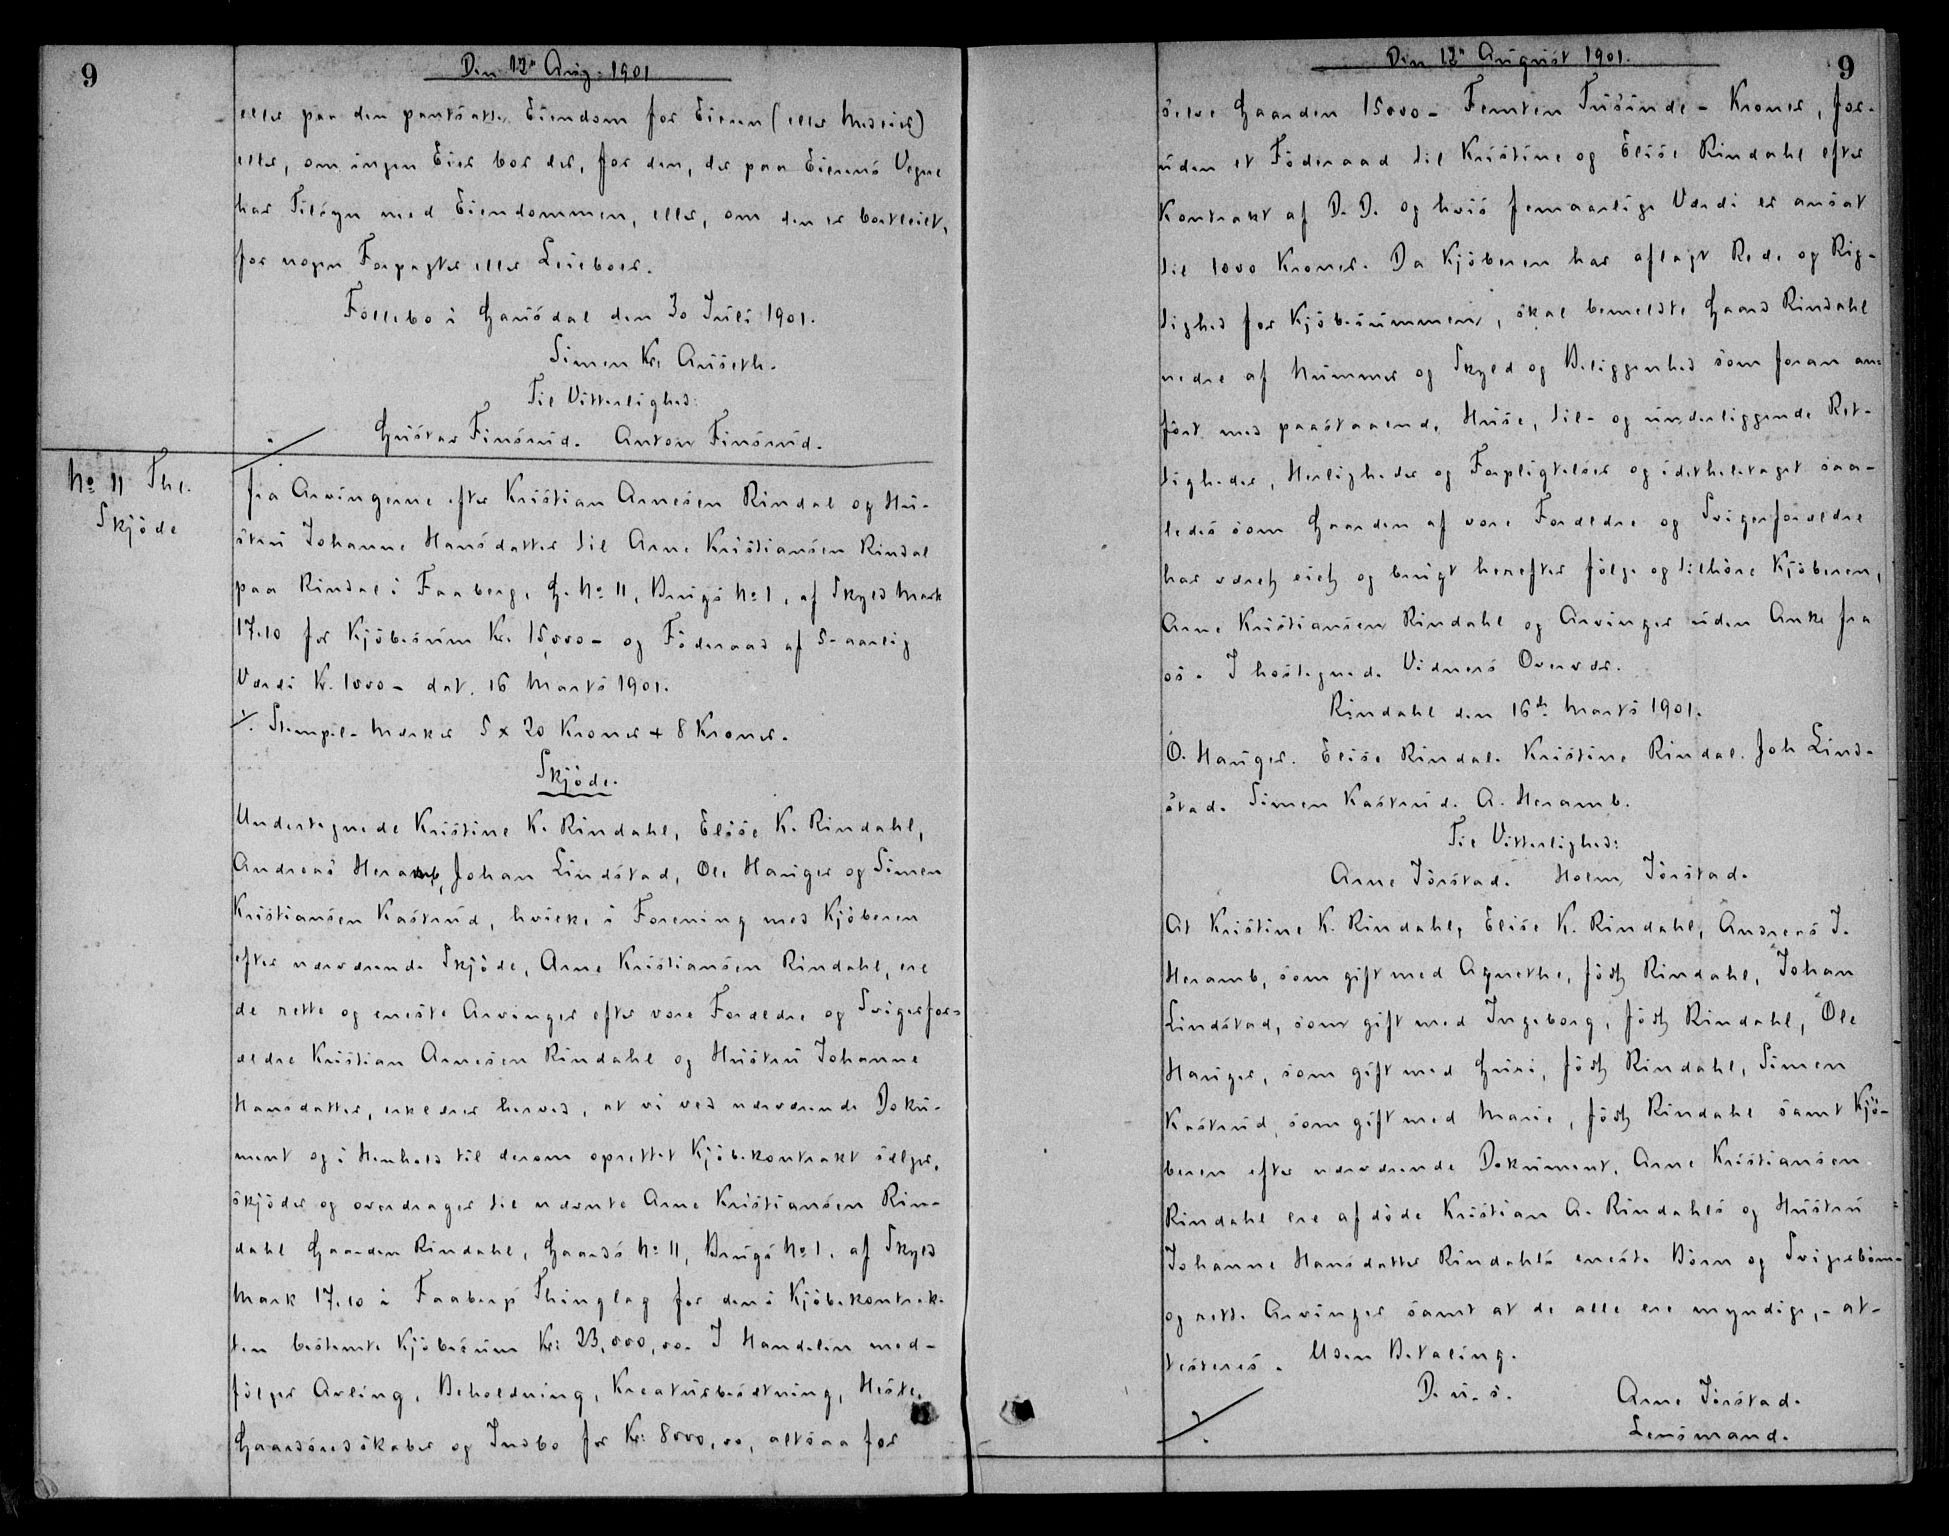 9
Den 12te Aug. 1901
eller paa den pantsatte Eiendom for Eieren (eller Medeier)
eller, om ingen Eier bor der, for den, der paa Eierens Vegne
har Tilsyn med Eiendommen, eller, om den er bortleiet,
for nogen Forpagter eller Leieboer.
Follebo i Gausdal den 30 Juli 1901.
Simen Kr. Auseth.
Til Vitterlighed:
Gustav Finsrud. Anton Finsrud.
No 11 Thl.
Skjöde
fra Arvingerne efter Kristian Arnesen Rindal og Hu-
stru Johanne Hansdatter til Arne Kristiansen Rindal
paa Rindal i Faaberg, G. No 11, Brugs No 1, af Skyld Mark
17.10 for Kjöbesum Kr. 15,000- og Föderaad af 5-aarlig
Værdi Kr. 1000- dat. 16 Marts 1901.
Stempel-Mærker 5 x 20 Kroner + 8 Kroner.
Skjöde.
Undertegnede Kristine K. Rindahl, Elise K. Rindahl,
Andreas Heramb, Johan Lindstad, Ole Hauger og Simen
Kristiansen Kastrud, hvilke i Forening med Kjöberen
efter nærværende Skjöde, Arne Kristiansen Rindahl, ere
de rette og eneste Arvinger efter vore Forældre og Svigerfor-
ældre Kristian Arnesen Rindahl og Hustru Johanne
Hansdatter, erklærer herved, at vi ved nærværende Doku-
ment og i Henhold til derom oprettet Kjöbekontrakt sælger,
skjöder og overdrager til nævnte Arne Kristiansen Rin-
dahl Gaarden Rindahl, Gaards No 11, Brugs No 1, af Skyld
Mark 17.10 i Faabergs Thinglag for den i Kjöbekontrak-
ten bestemte Kjöbesum Kr: 23,000,00. I Handelen med-
fölger Avling, Beholdning, Kreaturbesætning, Heste,
Gaardsredskaber og Indbo for Kr: 8000,00, altsaa for
Den 12te August 1901.
9
selve Gaarden 15000- Femten Tusinde - Kroner, for-
uden et Föderaad til Kristine og Elise Rindahl efter
Kontrakt af D. D. og hvis femaarlige Værdi er ansat
til 1000 Kroner. Da Kjöberen har aflagt Rede og Rig-
tighed for Kjöbesummen, skal bemeldte Gaard Rindahl
nedre af Nummer og Skyld og Beliggenhed som foran an-
fört med paastaaende Huse, til- og underliggende Ret-
tigheder, Herligheder og Forpligtelser og idethele­taget saa-
ledes som Gaarden af vore Forældre og Svigerforældre
har været eiet og brugt herefter fölge og tilhöre Kjöberen,
Arne Kristiansen Rindahl og Arvinger uden Anke fra
os. I hostegnede Vidners Overvær.
Rindahl den 16de Marts 1901.
O. Hauger. Elise Rindal. Kristine Rindal. Joh Lind-
stad. Simen Kastrud. A. Heramb.
Til Vitterlighed:
Arne Jörstad. Holm Jörstad.
At Kristine K. Rindahl, Elise K. Rindahl, Andreas J.
Heramb, som gift med Agnethe, födt Rindahl, Johan
Lindstad, som gift med Ingeborg, födt Rindahl, Ole
Hauger, som gift med Guri, födt Rindahl, Simen
Kastrud, som gift med Marie, födt Rindahl samt Kjö-
beren efter nærværende Dokument, Arne Kristiansen
Rindahl ere afdöde Kristian A. Rindahls og Hustru
Johanne Hansdatter Rindahls eneste Börn og Svigerbörn
og rette Arvinger samt at de alle ere myndige, - at-
testeres. Uden Betaling.
D. u. s.
Arne Jörstad.
Lensmand.